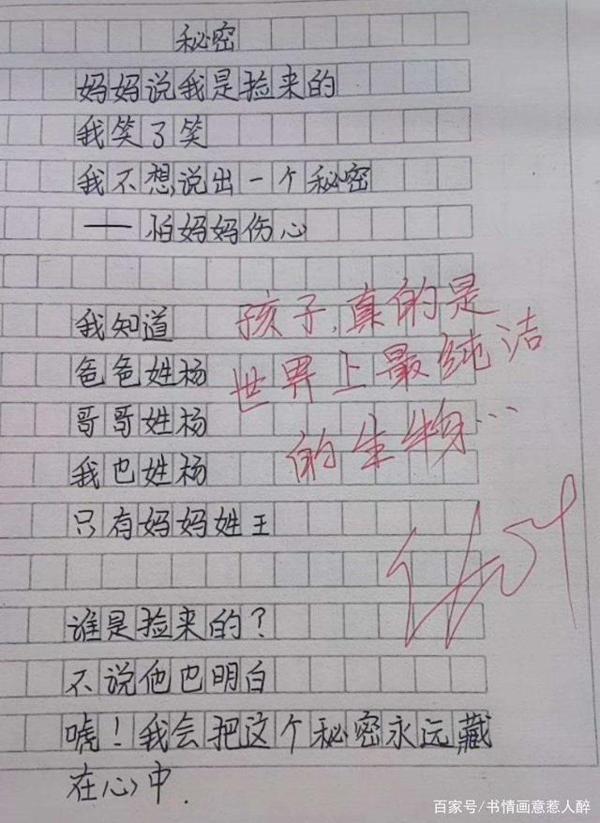 秘密
妈妈说我是捡来的
我笑了笑
我不想说出一个秘密
——怕妈妈伤心
我知道
爸爸姓杨
哥哥姓杨
我也姓杨
只有妈妈姓王
孩子,真的是
世界上最纯洁
的生物…
谁是捡来的?
不说他巴明白
唬!我会把这个秘密永远藏
在心中.
百家号/书情画意惹人醉